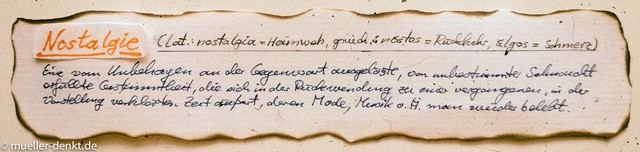 Nostalgie (Lat.: nostalgia = Heimweh, griech.: nóstos = Rückkehr, álgos = Schmerz)
Eine vom Unbehagen an der Gegenwart ausgelöste, von unbestimmter Sehnsucht
erfüllte Gestimmtheit, die sich in der Rückwendung zu einer vergangenen, in der
Vorstellung verklärten Zeit äußert, deren Mode, Musik o. Ä. man wieder belebt.
© mueller-denkt.de